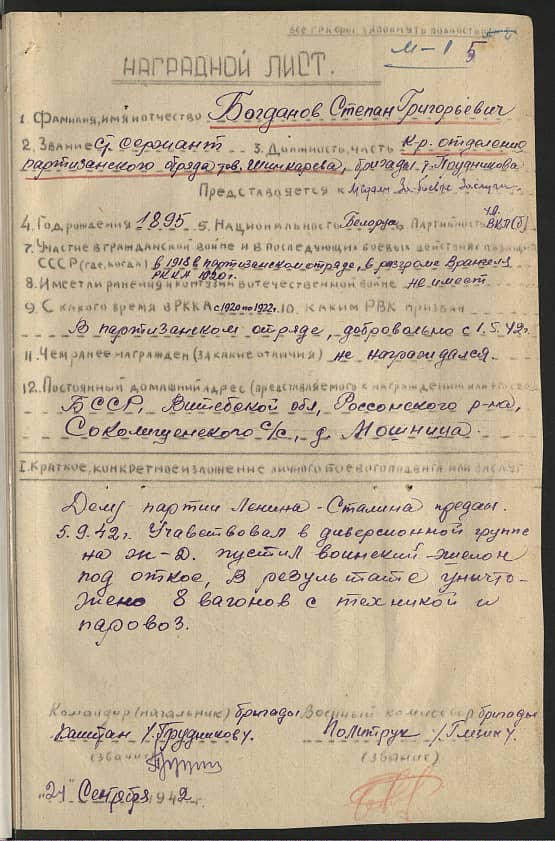 ВСЕ ГРАФЫ ЗАПОЛНЯТЬ ПОЛНОСТЬЮ
М-1 5
НАГРАДНОЙ ЛИСТ.
1. ФАМИЛИЯ, ИМЯ И ОТЧЕСТВО Богданов Степан Григорьевич
2. ЗВАНИЕ Ст. сержант 3. ДОЛЖНОСТЬ, ЧАСТЬ К-р. отделению
партизанского отряда тов. Шинкарева, бригады т. Прудникова
ПРЕДСТАВЛЯЕТСЯ К Медали За боевые заслуги.
4. ГОД РОЖДЕНИЯ 1895 5. НАЦИОНАЛЬНОСТЬ Белорус 6. ПАРТИЙНОСТЬ чл. ВКП(б)
7. УЧАСТИЕ В ГРАЖДАНСКОЙ ВОЙНЕ И В ПОСЛЕДУЮЩИХ БОЕВЫХ ДЕЙСТВИЯХ
СССР (ГДЕ, КОГДА) в 1918 в партизанском отряде, в разгроме Врангеля
РККА 1920 г.
8. ИМЕЕТ ЛИ РАНЕНИЯ И КОНТУЗИИ В ОТЕЧЕСТВЕННОЙ ВОЙНЕ не имеет.
9. С КАКОГО ВРЕМЕНИ В РККА с 1920 по 1922 г. 10. КАКИМ РВК ПРИЗВАН
В партизанском отряде, добровольно с 1.5.42 г.
11. ЧЕМ РАНЕЕ НАГРАЖДЕН (ЗА КАКИЕ ОТЛИЧИЯ) не награждался.
12. ПОСТОЯННЫЙ ДОМАШНИЙ АДРЕС (ПРЕДСТАВЛЯЕМОГО К НАГРАЖДЕНИЮ ИЛИ
БССР, Витебской обл, Россонского р-на,
Соколищенского с/с, д. Мошница.
I. КРАТКОЕ, КОНКРЕТНОЕ ИЗЛОЖЕНИЕ ЛИЧНОГО БОЕВОГО ПОДВИГА ИЛИ ЗАСЛУГ
Делу партии Ленина-Сталина предан.
5.9.42г. Учавствовал в диверсионной группе
на ж-д. пустил воинский эшелон
под откос, В результате уничто-
жено 8 вагонов с техникой и
паровоз.
КОМАНДИР (НАЧАЛЬНИК) бригады ВОЕННЫЙ КОМИССАР бригады
Капитан /Прудников/ Политрук
(ЗВАНИЕ) (ЗВАНИЕ)
"21" Сентября 1942 г.